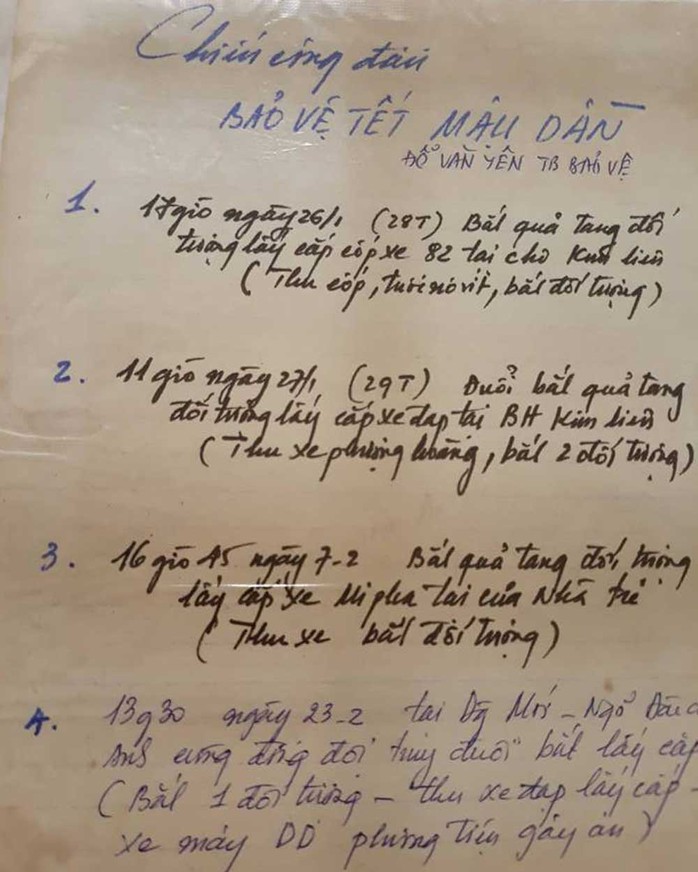 Chiến công đầu
BẢO VỆ TẾT MẬU DẦN
ĐỖ VĂN YÊN TB BẢO VỆ
1. 17 giờ ngày 26/1 (28T) Bắt quả tang đối
tượng lấy cắp cốp xe 82 tại chợ Kim liên
(Thu cốp, tuốcnơvít, bắt đối tượng)
2. 11 giờ ngày 27/1 (29T) Đuổi bắt quả tang
đối tượng lấy cắp xe đạp tại BH Kim liên
(Thu xe phượng hoàng, bắt 2 đối tượng)
3. 16 giờ 45 ngày 7-2 Bắt quả tang đối tượng
lấy cắp xe Mipha tại cửa Nhà trẻ
(Thu xe bắt đối tượng)
4. 13g30 ngày 23-2 tại Mới - Ngõ
cùng đồng đội truy đuổi bắt lấy cắp
(Bắt 1 đối tượng - thu xe đạp lấy cắp -
xe máy DD phương tiện gây án)